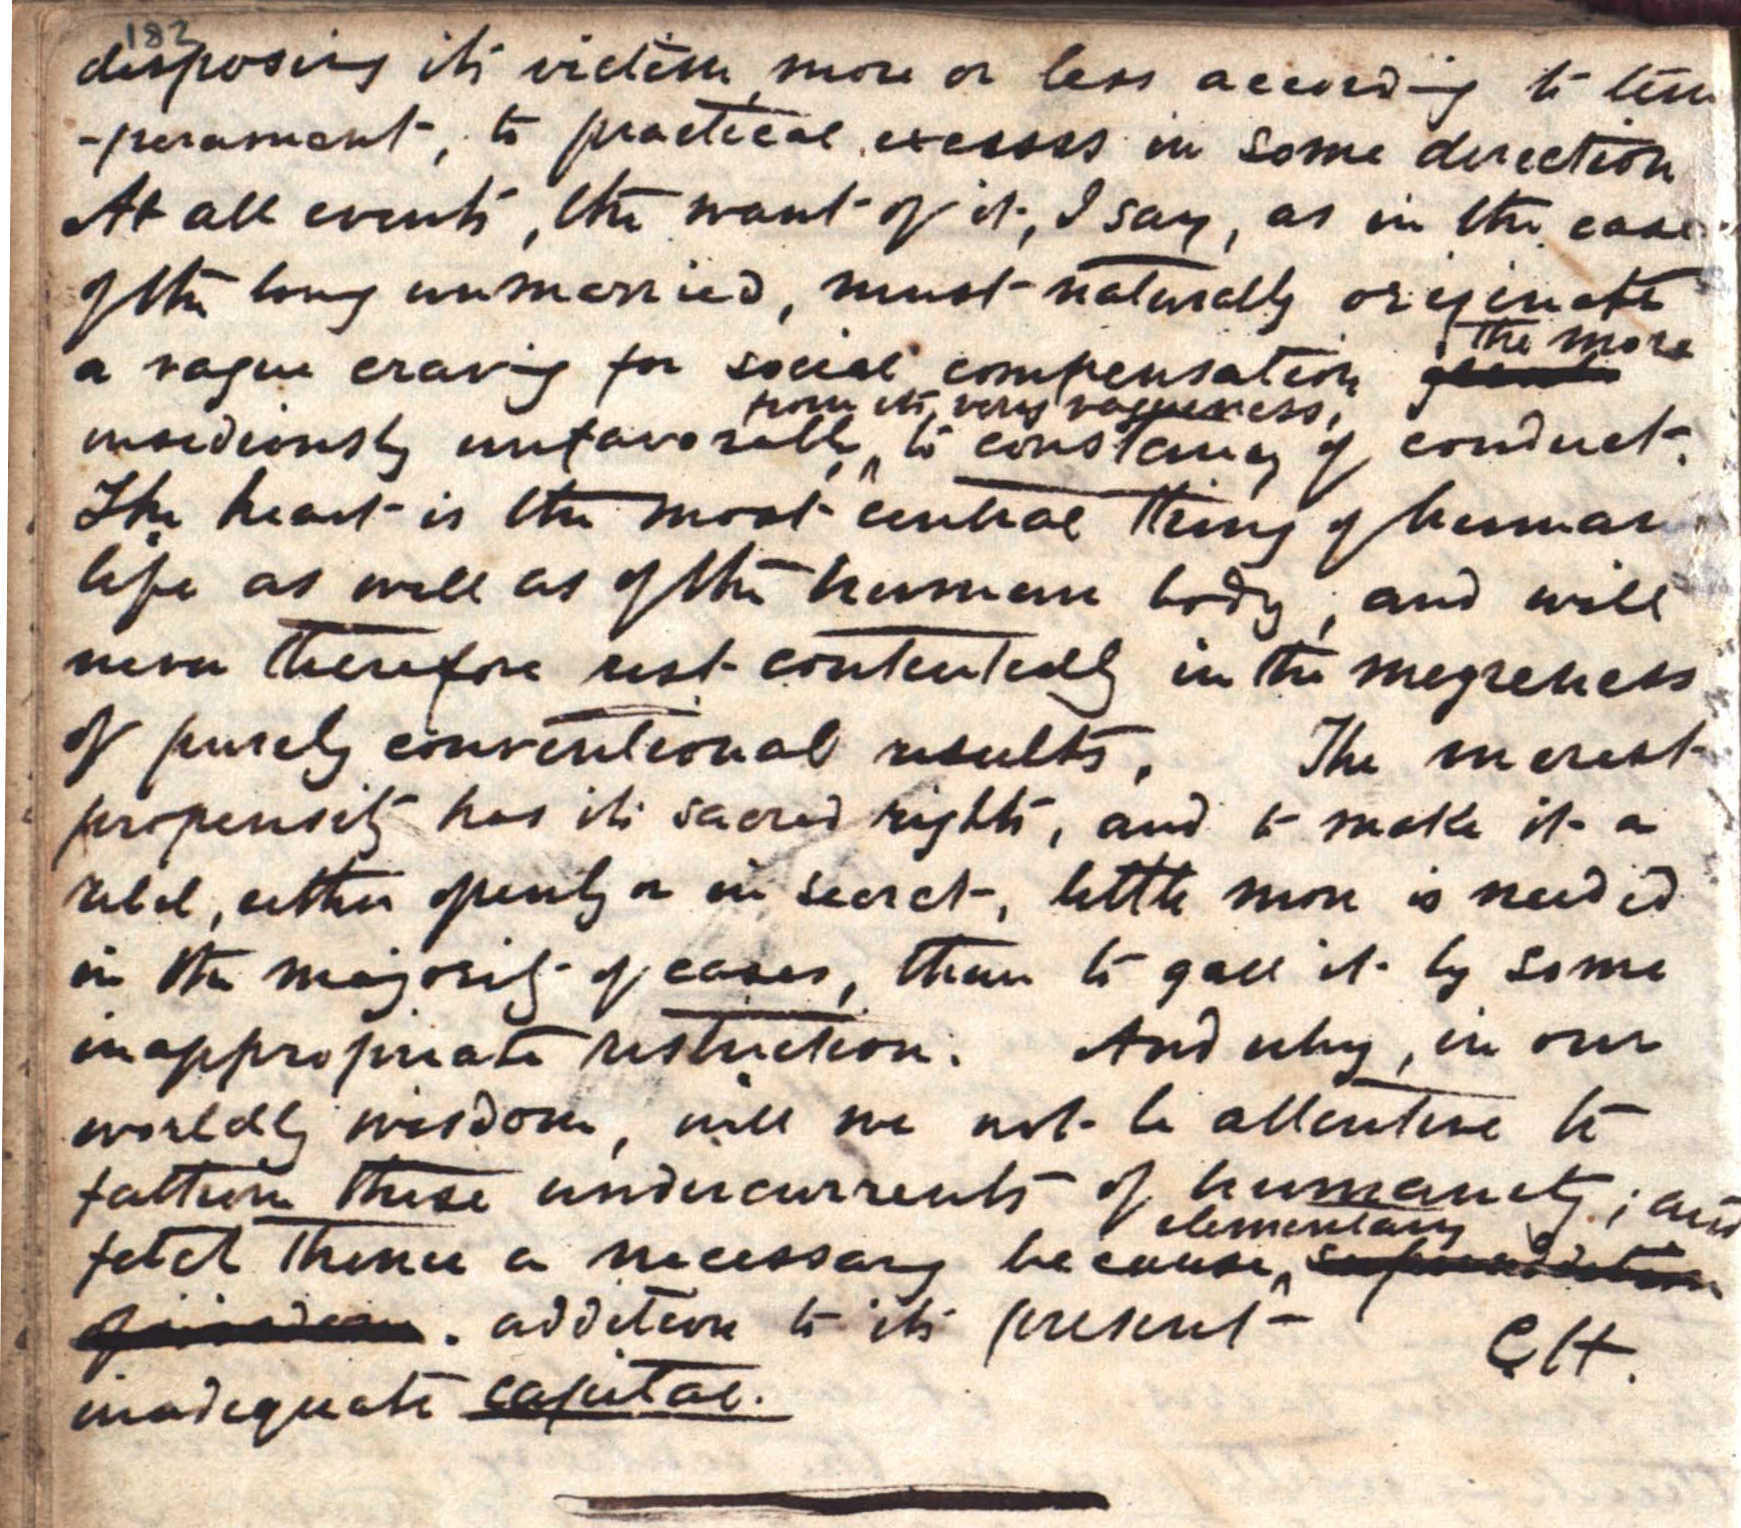 182
disposing its victim, more or less according to tem
-perament, to practical excesses in some direction
At all events, the want of it, I say, as in the case
of the long unmarried, must naturally originate
the more
a vague craving for social compensation
from its very vagueness,
insidiously unfavorable, to constancy of conduct.
The heart is the most central thing of human
life as well as of the human body, and will
never therefore rest contentedly in the megreness
of purely conventional results. The merest
propensity has its sacred rights, and to make it a
rebel, either openly or in secret, little more is needed
in the majority of cases, than to gall it by some
inappropriate restriction. And why, in our
worldly wisdom, will we not be attentive to
fathom these undercurrents of humanity; and
elementary
fetch thence a necessary because
addition to its present
inadequate capital.